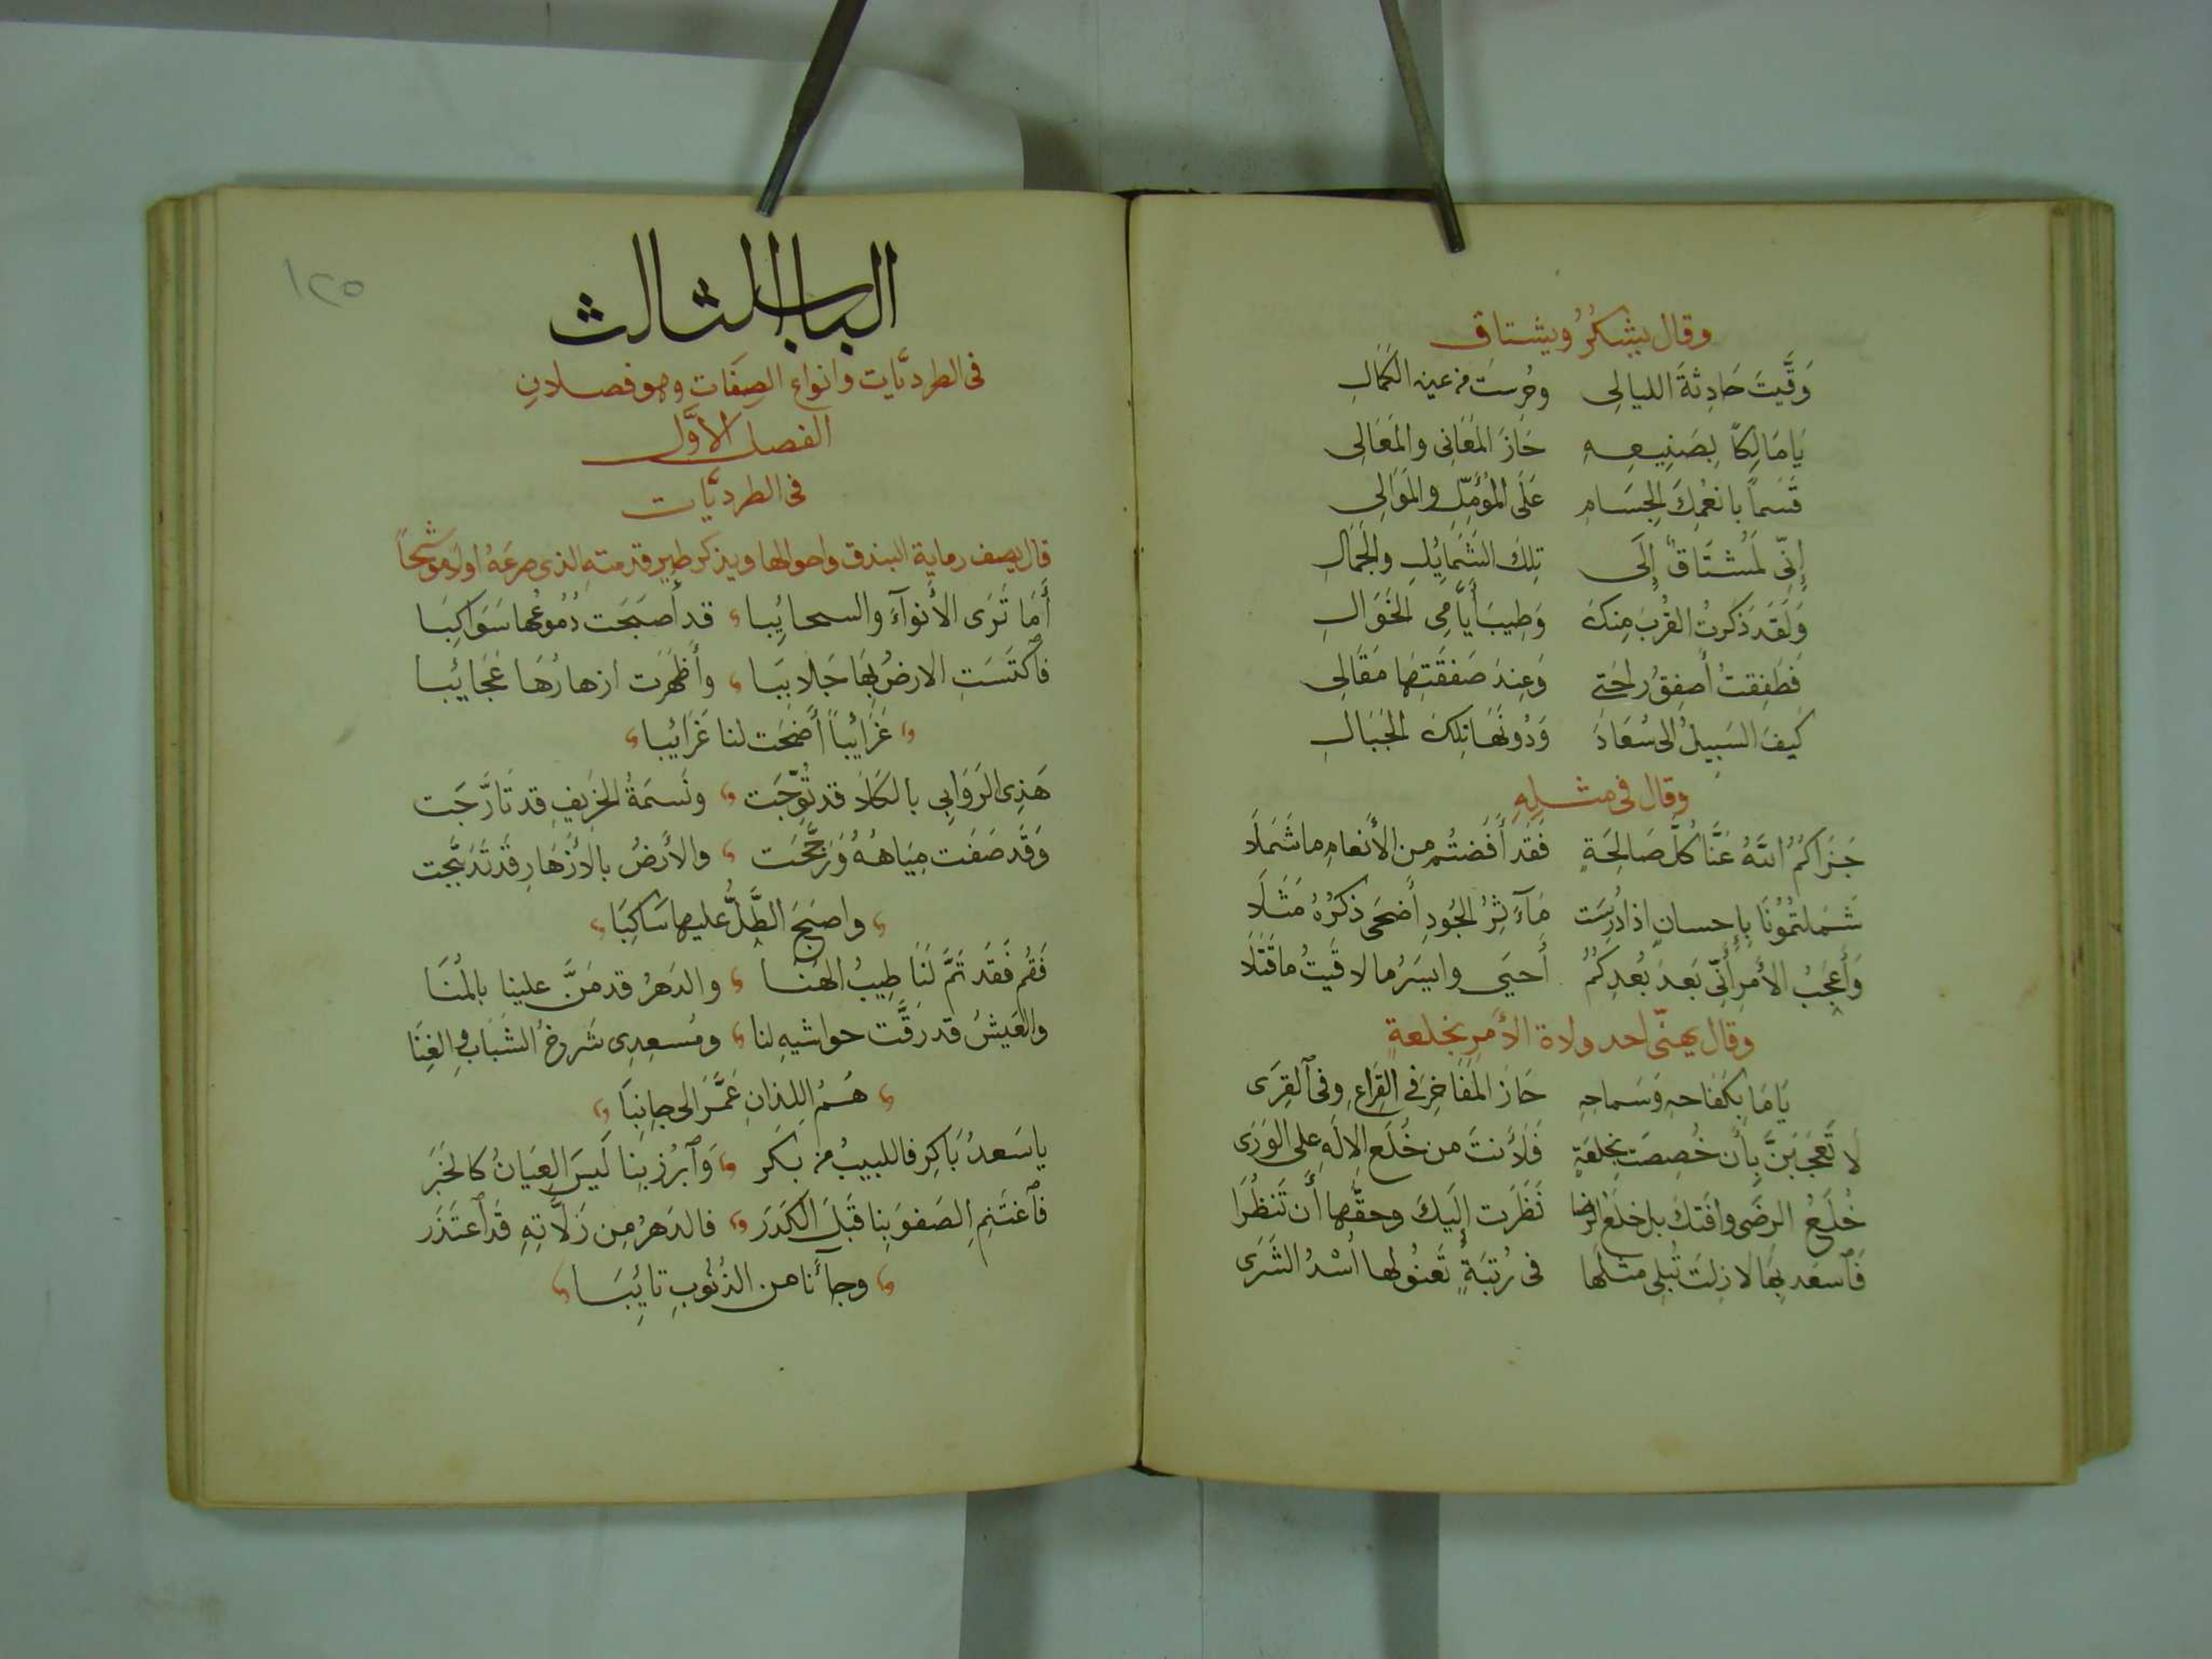 وقال يشكرُ ويشتاق
وَقَّيتَ حَادِثةَ الليالِى وحُرِستَ من عين الكَمَالِ
يَا مَالِكاً بِصَنِيعِهِ حَازَ المَعَانِى والمَعَالِى
قَسَماً بانعُمِكَ الجِسَامِ عَلَى المُؤَمِّلِ والمَوَالِى
إِنِّى لَمُشتَاقٌ إِلَى تِلكَ الشَمَايُلِ والجَمَالِ
وَلَقَد ذَكَرتُ القُربَ مِنكَ وَطِيبَ أَيَّامِى الخَوَالِ
فَطَفِقتُ أصفِقُ رَاحَتِى وَعِندَ صَفقَتِهَا مَقَالِى
كَيفَ السَبِيلُ الى سُعَادَ وَدُونَهَا تِلكَ الجِبَالِ
وقال فى مثلِهِ
جَزَاكُمُ اللَّهُ عَنَّا كُلَّ صَالِحَةٍ فَقَد أَفَضتُم من الأَنعامِ ما شَمَلَا
شَمَلتُمُونَا بِإحسانٍ اذا دُرِسَت مَآثِرُ الجُودِ أَضحَى ذكرُهُ مَثَلَا
وَأَعجَبُ الأَمرِ أَنِّى بَعدَ بُعدِكُمُ أَحيَى وايسَرُ ما لاقَيتُ ما قَتَلَا
وقال يهنّى احد ولاة الأمرِ بخلعةٍ
يَا مَا بِكفَاحهِ وَسَماحهِ حَازَ المَفَاخِرَ فى القِرَاعِ وفى القِرَى
لا تَعجَبَنَّ بِأَن خُصِصتَ بِخِلعَةٍ فَلأَنتَ من خَلَعِ الإِلَهِ على الوَرَى
خُلَعُ الرِضَى وافَتكَ بل خلعُ الرضا نَظَرَت إِلَيكَ وحقّها أَن تَنظُرَا
فَاسعَد بِهَا لا زِلتَ تُبلِى مثلَهَا فى رُتبَةٍ تَعنُو لها اُسْدُ الشَرَى
١٢٥
الباب الثالث
فى الطرديَّات وانواع الصِفَات وهو فصلانِ
الفصل الأوَّل
فى الطرديَّات
قال يصف رماية البندق واحوالها ويذكر طير قدمته الذى صرعَهُ اولا موشحاً
أَمَا تَرَى الأنوآءَ والسحايُبا قد أَصبَحَت دُمُوعُها سَوَاكِبَا
فَاكتَسَتِ الارضُ بِهَا جَلابِبَا وأَظهَرَت ازهارُهَا عَجَايُبا
غَرَايُباً أَضحَت لنا غَرَائبا
هَذِى الرَوَابِى بالكَلاَ قد تُوِّجَت ونَسمَةُ الخَرِيفِ قد تَأرَّجَت
وَقَد صَفَت مِيَاهُهُ وَزَجَّجَت والأَرضُ بالأزهَارِ قَد تَدَبَّجت
واصبَحَ الطَّلُّ عليها ساكِبَا
فَقُم فَقَد تَمَّ لَنَا طِيبُ الهَنا والدَهرُ قد مَنَّ علينا بالمُنَا
والعَيشُ قد رَقَّت حواشيهِ لنا ومُسعِدِى شَرخُ الشَبَابِ والغِنَا
هُمُ اللذانِ عَمَّرَا لِى جانِبَا
يا سَعدُ بَاكِر فاللبيبُ من بكر وَابرُز بِنا لَيسَ العِيَانُ كالخَبَر
فَاغتَنِم الصَفوَ بِنا قَبلَ الكَدَر فالدَهرُ مِن زَلَّاتِهِ قَد اعتَذَر
وجآنا من الذُنُوبِ تايُبَا